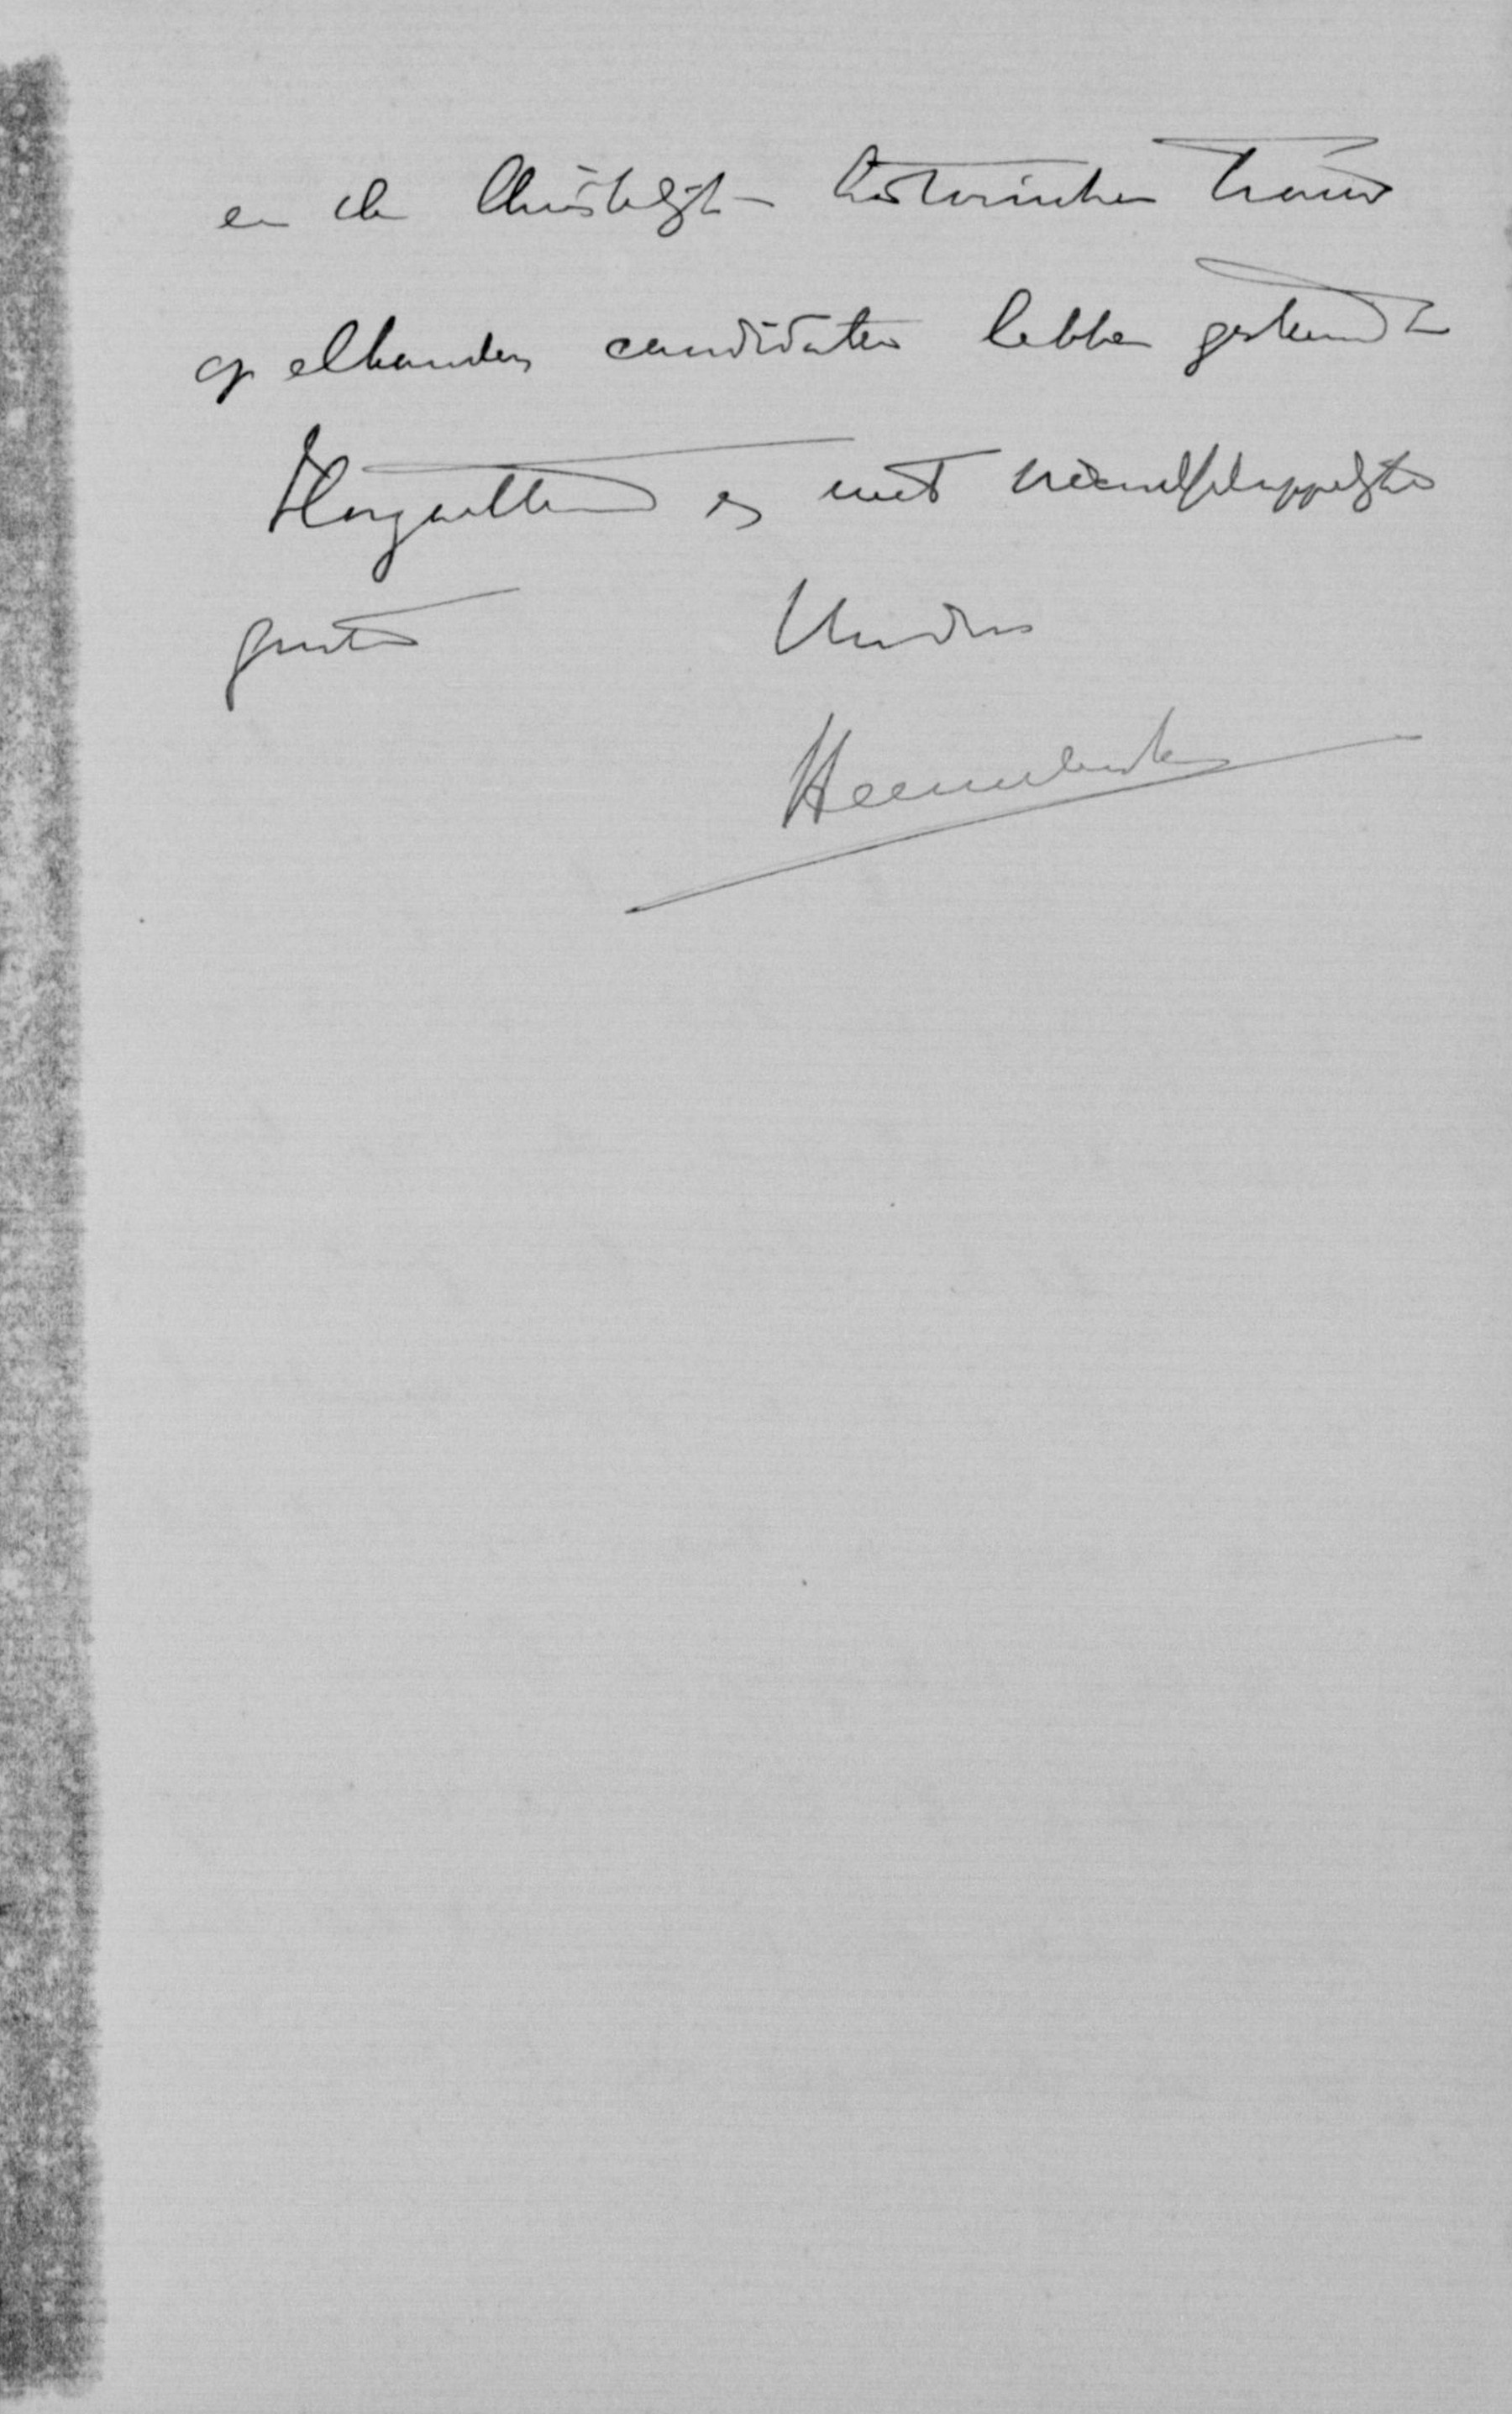 en de Christelijk-historischen trouw
op elkanders candidaten hebben gestemd.
Hoogachtend en met vriendschappelijke
groeten Uw dw
Heemskerk